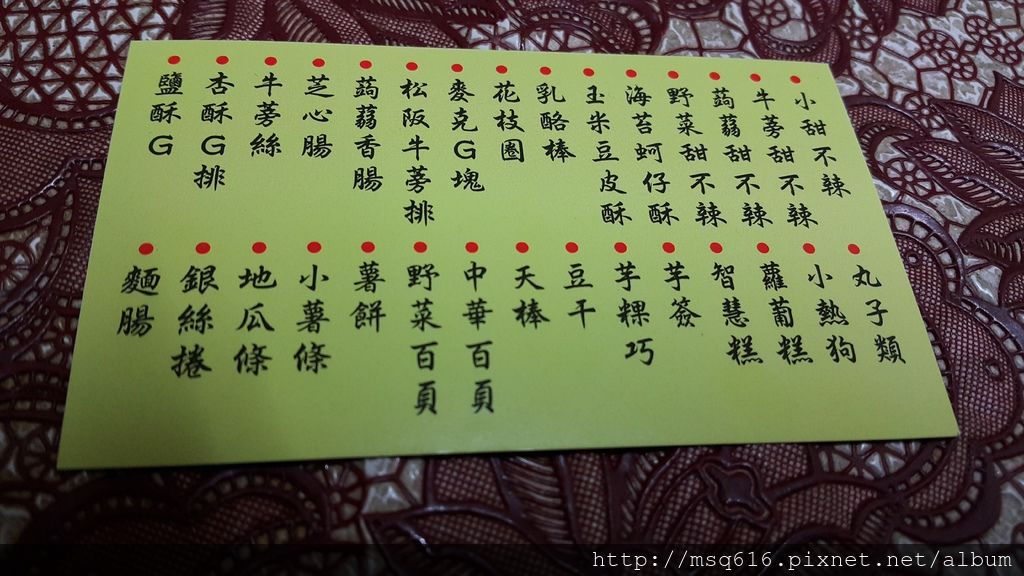 鹽酥G
杏酥G排
牛蒡絲
芝心腸
蒟蒻香腸
松阪牛蒡排
麥克G塊
花枝圈
乳酪棒
玉米豆皮酥
海苔蚵仔酥
野菜甜不辣
蒟蒻甜不辣
牛蒡甜不辣
小甜不辣
麵腸
銀絲捲
地瓜條
小薯條
薯餅
野菜百頁
中華百頁
天棒
豆干
芋粿巧
芋簽
智慧糕
蘿蔔糕
小熱狗
丸子類
http://msq616.pixnet.net/album